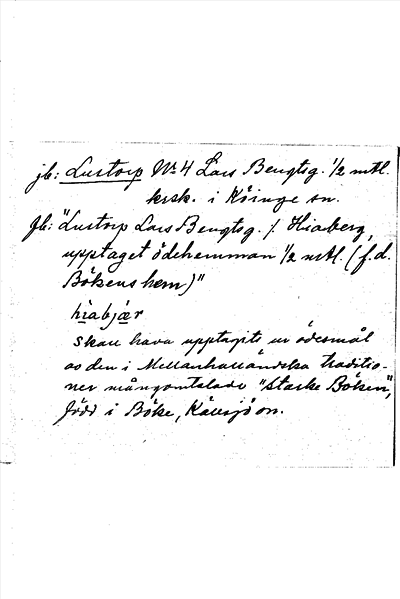 jb: Lustorp No 4 Lars Bengtsg. 1/2 mtl.
krsk. i Köinge sn.
Jb: "Lustorp Lars Bengtsg. /. Hiaberg,
upptaget ödehemman 1/2 mtl. (f.d.
Bökens hem)"
hiabjær
Skall hava upptagits ur ödesmål
av den i Mellanhalländska traditio-
ner mångomtalade "starke Böken",
född i Böke, Källsjö sn.